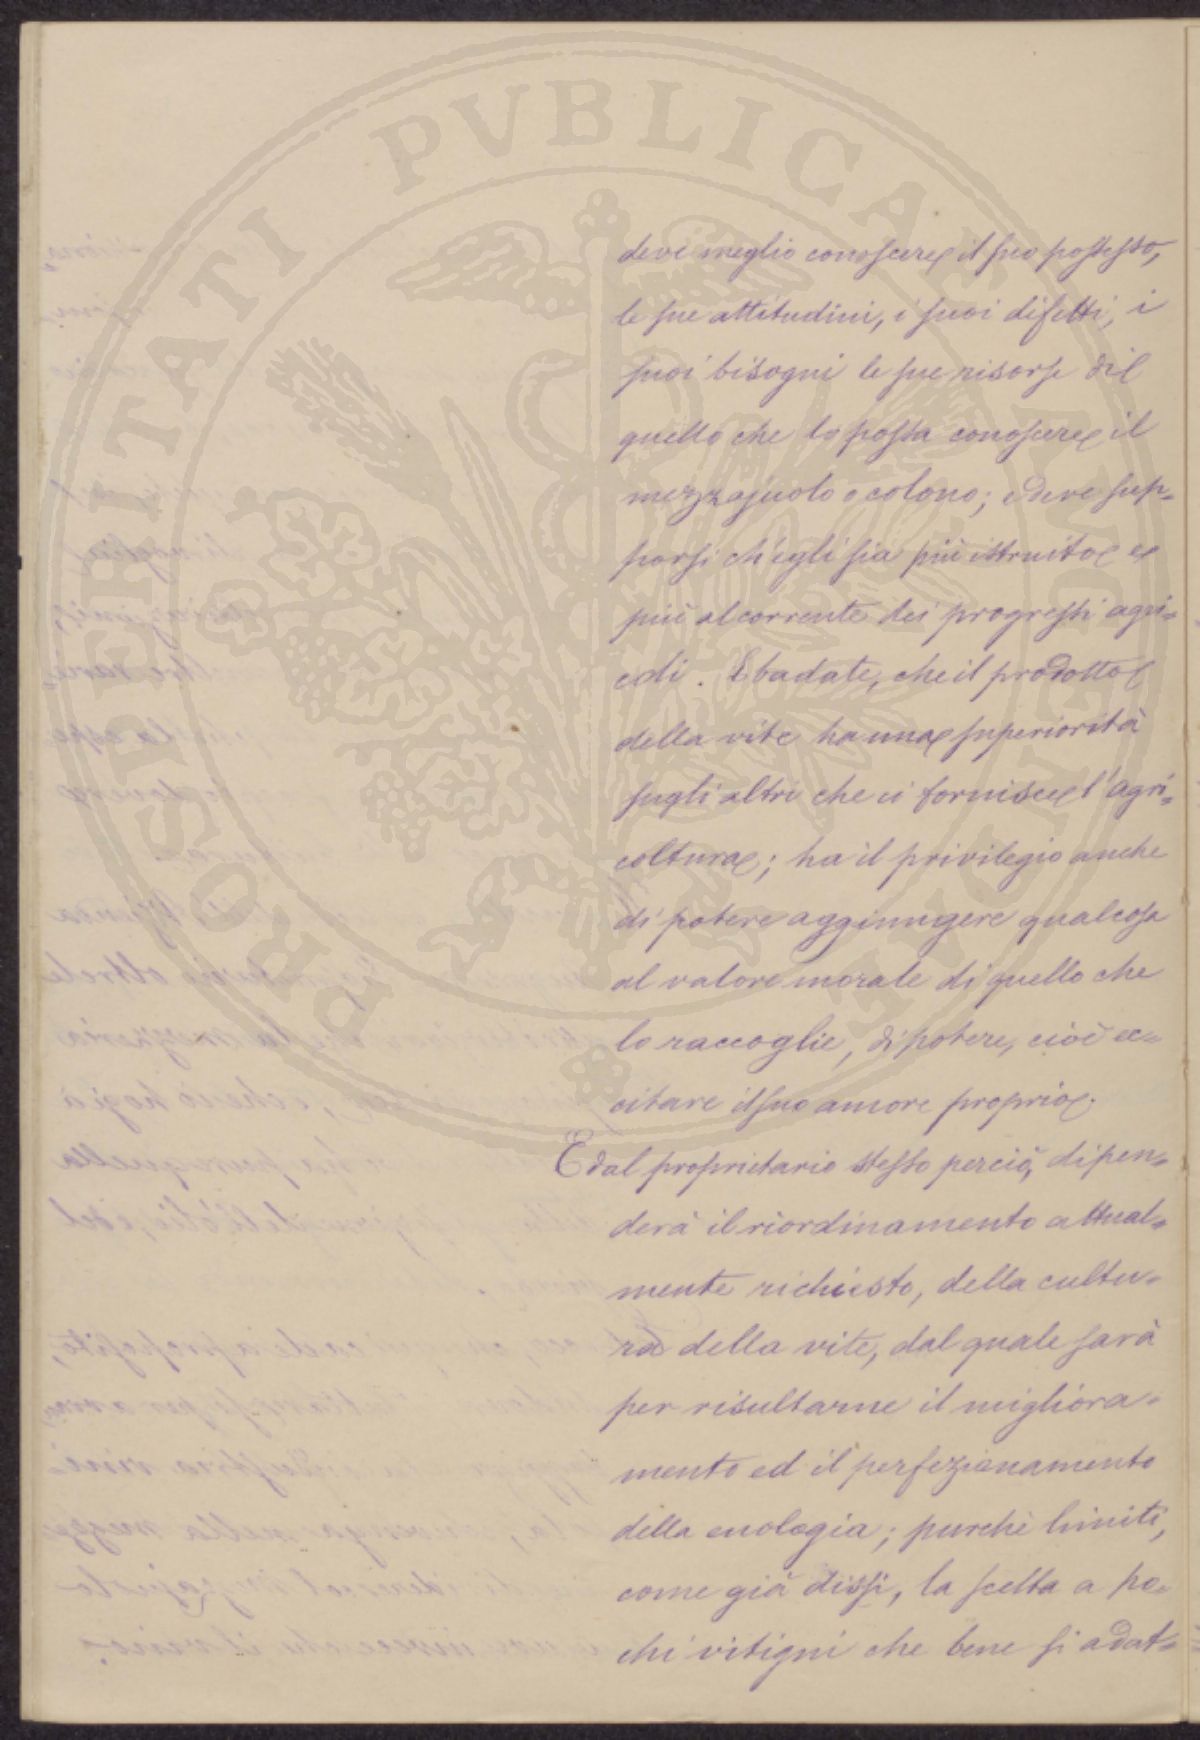 PROSPERITATI PVBLICAE AVGENDAE
deve meglio conoscere il suo possesso,
le sue attitudini, i suoi difetti, i
suoi bisogni le sue risorse di
quello che lo possa conoscere il
mezzajuolo o colono; e deve sup=
porsi ch'egli sia più istruito e
più al corrente dei progressi agri=
coli. E badate, che il prodotto
della vite ha una superiorità
sugli altri che ci fornisce l'agri=
coltura; ha il privilegio anche
di potere aggiungere qualcosa
al valore morale di quello che
lo raccoglie, di potere, cioè ec=
citare il suo amore proprio.
E dal proprietario stesso perciò, dipen=
derà il riordinamento attual=
mente richiesto, della cultu=
ra della vite, dal quale sarà
per risultarne il migliora=
mento ed il perfezionamento
della enologia; purchè limiti,
come già dissi, la scelta a po=
chi vitigni che bene si adat=